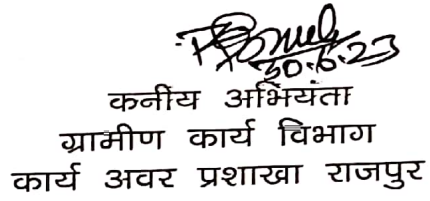 30.6.23
कनीय अभियंता
ग्रामीण कार्य विभाग
कार्य अवर प्रशाखा राजपुर